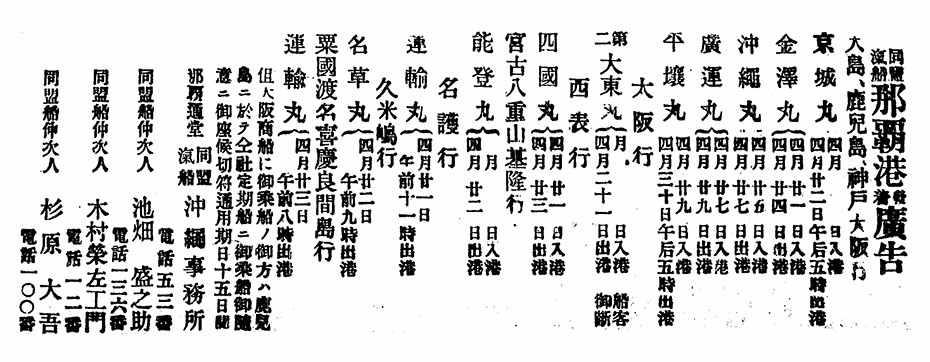 同盟汽船那覇港發着廣告
大島、鹿兒島、神戸大阪行
京城丸 四月 日入港 四月廿二日午后五時出港
金澤丸 四月廿一日入港 四月廿四日出港
沖繩丸 四月廿五日入港 四月廿七日出港
廣運丸 四月廿七日入港 四月廿九日出港
平壤丸 四月廿九日入港 四月三十日午后五時出港
太阪行
第二大東丸 月 日入港 船客 四月二十一日出港 御断
西表行
四國丸 四月廿一日入港 四月廿三日出港
宮古八重山基隆行
能登丸 四月 日入港 四月廿二日出港
名護行
運輸丸 四月廿一日 午前十一時出港
久米嶋行
名草丸 四月廿二日 午前九時出港
粟國渡名喜慶良間島行
運輸丸 四月廿三日 午前八時出港
但大阪商船に御乘船ノ御方ハ鹿兒
島ニ於テ仝社定期船ニ御乘船御隨
意ニ御座候切符通用期日十五日間
那覇通堂 同盟汽船 沖繩事務所
電話五三番
同盟船仲次人 池畑盛之助
電話一三六番
同盟船仲次人 木村榮左工門
電話一二番
同盟船仲次人 杉原大吾
電話一〇〇番